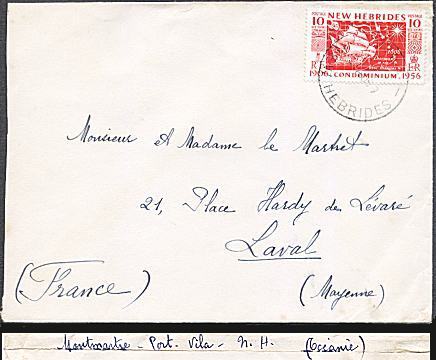 POSTAGE POSTAGE
10 NEW HEBRIDES 10
1606
RF E II R
1906 CONDOMINIUM 1956
HEBRIDES
Monsieur et Madame le Martret
21, Place Hardy de Lévaré
Laval
(France) (Mayenne)
Montmartre - Port. Vila - N. H. (Océanie)